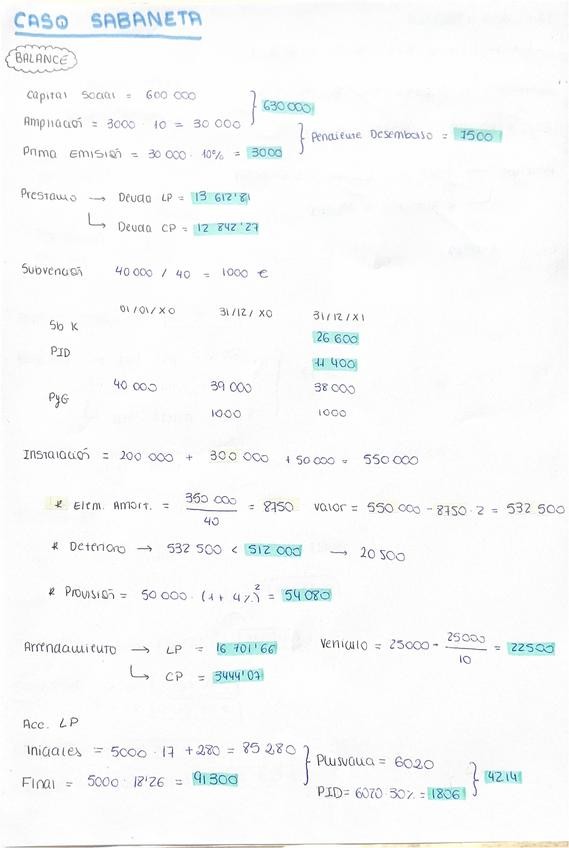 CASO SABANETA
BALANCE
Capital Social = 600 000
630 000
Ampliación = 3000 · 10 = 30 000
Pendiente Desembolso = 7500
Prima Emisión = 30 000 · 10% = 3000
Prestamo → Deuda LP = 13 612'81
↳ Deuda CP = 12 842'27
Subvención 40 000 / 40 = 1000 €
01/01/X0 31/12/X0 31/12/X1
Sb K 26 600
PID 11 400
40 000 39 000 38 000
PyG 1000 1000
Instalación = 200 000 + 300 000 + 50 000 = 550 000
* Elem. Amort. = 350 000 / 40 = 8750 Valor = 550 000 - 8750 · 2 = 532 500
* Deterioro → 532 500 < 512 000 → 20 500
* Provisión = 50 000 · (1 + 4%)² = 54 080
Arrendamiento → LP = 16 701'66 Vehiculo = 25000 - 25000 / 10 = 22500
↳ CP = 3444'07
Acc. LP
Iniciales = 5000 · 17 + 280 = 85 280
Plusvalia = 6020
Final = 5000 · 18'26 = 91 300
4214
PID = 6020 · 30% = 1806